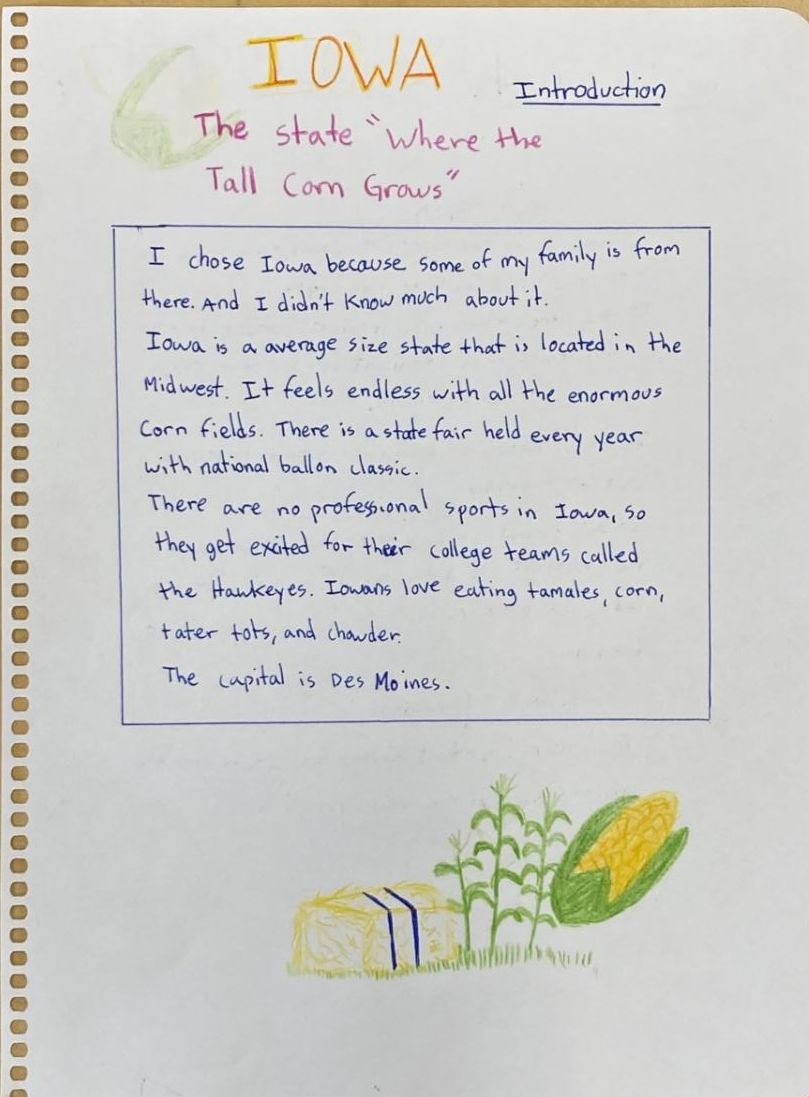 IOWA
Introduction
The state "Where the
Tall Corn Grows"
I chose Iowa because some of my family is from
there. And I didn't know much about it.
Iowa is a average size state that is located in the
Midwest. It feels endless with all the enormous
Corn fields. There is a state fair held every year
with national ballon classic.
There are no professional sports in Iowa, so
they get excited for their college teams called
the Hawkeyes. Iowans love eating tamales, corn,
tater tots, and chowder.
The capital is Des Moines.